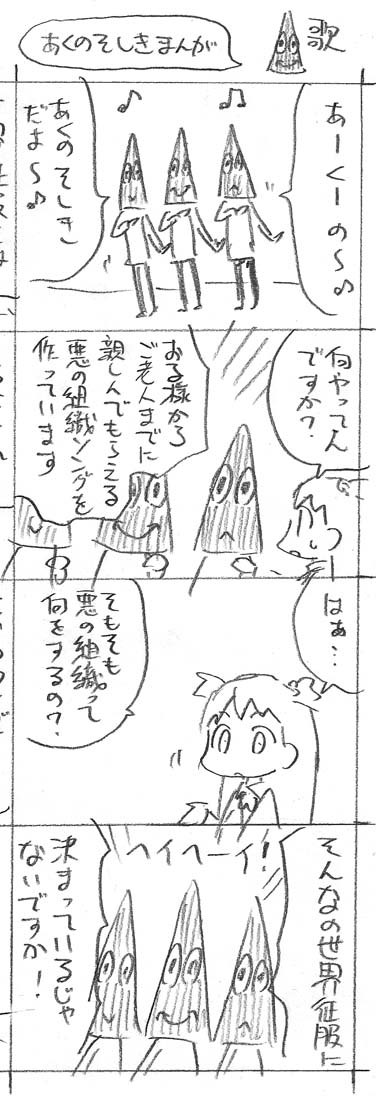 あくのそしきまんが
歌
あーくーの〜♪
あくのそしき
だよ〜♪
何やってん
ですか?
お子様から
ご老人までに
親しんでもらえる
悪の組織ソングを
作っています
はぁ…
そもそも
悪の組織って
何をするの?
ヘイヘーイ!
そんなの世界征服に
決まっているじゃ
ないですか!